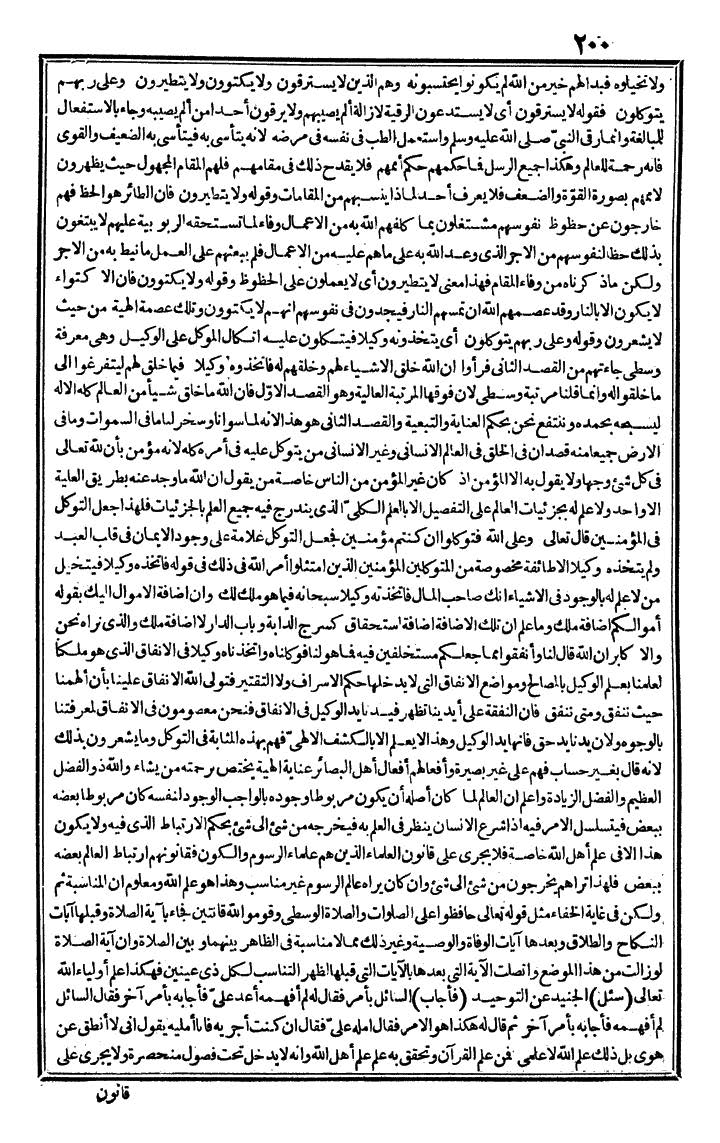 ٢٠٠
ولا تخيلوه فبدا لهم خير من الله لم يكونوا يحتسبونه وهم الذين لا يسترقون ولا يكتوون ولا يتطيرون وعلى ربهم
يتوكلون فقوله لا يسترقون أى لا يستدعون الرقية لازالة ألم يصيبهم ولا يرقون أحدا من ألم يصيبه وجاء بالاستفعال
للمبالغة وانما رقى النبىّ صلى الله عليه وسلم واستعمل الطب فى نفسه فى مرضه لانه يتأسى به فيتأسى به الضعيف والقوى
فانه رحمة للعالم وهكذا جميع الرسل فما حكمهم حكم أممهم فلا يقدح ذلك فى مقامهم فلهم المقام المجهول حيث يظهرون
لاممهم بصورة القوّة والضعف فلا يعرف أحد لماذا ينسبهم من المقامات وقوله ولا يتطيرون فان الطائر هو الحظ فهم
خارجون عن حظوظ نفوسهم مشتغلون بما كلفهم الله به من الاعمال وفاء لما تستحقه الربوبية عليهم لا يبتغون
بذلك حظا لنفوسهم من الاجر الذى وعد الله به على ما هم عليه من الاعمال فلم يبعثهم على العمل ما نيط به من الاجر
ولكن ما ذكرناه من وفاء المقام فهذا معنى لا يتطيرون أى لا يعملون على الحظوظ وقوله ولا يكتوون فان الاكتواء
لا يكون الا بالنار وقد عصمهم الله ان تمسهم النار فيجدون فى نفوسهم انهم لا يكتوون وتلك عصمة الهية من حيث
لا يشعرون وقوله وعلى ربهم يتوكلون أى يتخذونه وكيلا فيتكلون عليه اتكال الموكل على الوكيل وهى معرفة
وسطى جاءتهم من القصد الثانى فرأوا ان الله خلق الاشياء لهم وخلقهم له فاتخذوه وكيلا فيما خلق لهم ليتفرغوا الى
ما خلقوا له وانما قلنا مرتبة وسطى لان فوقها المرتبة العالية وهو القصد الاوّل فان الله ما خلق شيأ من العالم كله الا له
ليسبحه بحمده وننتفع نحن بحكم العناية والتبعية والقصد الثانى هو هذا لانه لما سوانا وسخر لنا ما فى السموات وما فى
الارض جميعا منه قصدان فى الخلق فى العالم الانسانى وغير الانسانى من يتوكل عليه فى أمره كله لانه مؤمن بأن لله تعالى
فى كل شئ وجها ولا يقول به الا المؤمن اذ كان غير المؤمن من الناس خاصة من يقول ان الله ما وجد عنه بطريق العلية
الا واحد ولا علم له بجزئيات العالم على التفصيل الا بالعلم الكلىّ الذى يندرج فيه جميع العلم بالجزئيات فلهذا جعل التوكل
فى المؤمنين قال تعالى وعلى الله فتوكلوا ان كنتم مؤمنين فجعل التوكل علامة على وجود الايمان فى قلب العبد
ولم يتخذه وكيلا الا طائفة مخصوصة من المتوكلين المؤمنين الذين امتثلوا أمر الله فى ذلك فى قوله فاتخذه وكيلا فيتخيل
من لا علم له بالوجود فى الاشياء انك صاحب المال فاتخذته وكيلا سبحانه فيما هو ملك لك وان اضافة الاموال اليك بقوله
أموالكم اضافة ملك وما علم ان تلك الاضافة اضافة استحقاق كسرج الدابة وباب الدار لا اضافة ملك والذى نراه نحن
والاكابر ان الله قال لنا وأنفقوا مما جعلكم مستخلفين فيه فما هو لنا فوكلناه واتخذناه وكيلا فى الانفاق الذى هو ملكنا
لعلمنا بعلم الوكيل بالمصالح ومواضع الانفاق التى لا يدخلها حكم الاسراف ولا التقتير فتولى الله الانفاق علينا بأن ألهمنا
حيث ننفق ومتى ننفق فان النفقة على أيدينا تظهر فيدنا يد الوكيل فى الانفاق فنحن معصومون فى الانفاق لمعرفتنا
بالوجوه ولان يدنا يد حق فانها يد الوكيل وهذا لا يعلم الا بالكشف الالهىّ فهم بهذه المثابة فى التوكل وما يشعرون بذلك
لانه قال بغير حساب فهم على غير بصيرة وأفعالهم أفعال أهل البصائر عناية الهية يختص برحمته من يشاء والله ذو الفضل
العظيم والفضل الزيادة واعلم ان العالم لما كان أصله أن يكون مربوطا وجوده بالواجب الوجود لنفسه كان مربوطا بعضه
ببعض فيتسلسل الامر فيه اذا شرع الانسان ينظر فى العلم به فيخرجه من شئ الى شئ بحكم الارتباط الذى فيه ولا يكون
هذا الا فى علم أهل الله خاصة فلا يجرى على قانون العلماء الذين هم علماء الرسوم والكون فقانونهم ارتباط العالم بعضه
ببعض فلهذا تراهم يخرجون من شئ الى شئ وان كان يراه عالم الرسوم غير مناسب وهذا هو علم الله ومعلوم ان المناسبة ثم
ولكن فى غاية الخفاء مثل قوله تعالى حافظوا على الصلوات والصلاة الوسطى وقوموا لله قانتين فجاء بآية الصلاة وقبلها آيات
النكاح والطلاق وبعدها آيات الوفاة والوصية وغير ذلك مما لا مناسبة فى الظاهر بينهما وبين الصلاة وان آية الصلاة
لو زالت من هذا الموضع واتصلت الآية التى بعدها بالآيات التى قبلها لظهر التناسب لكل ذى عينين فهكذا علم أولياء الله
تعالى (سئل) الجنيد عن التوحيد (فأجاب) السائل بأمر فقال له لم أفهمه أعد علىّ فأجابه بأمر آخر فقال السائل
لم أفهمه فأجابه بأمر آخر ثم قال له هكذا هو الامر فقال امله علىّ فقال ان كنت أجريه فانا أمليه يقول انى لا أنطق عن
هوى بل ذلك علم الله لا علمى فن علم القرآن وتحقق به علم علم أهل الله وانه لا يدخل تحت فصول منحصرة ولا يجرى على
قانون